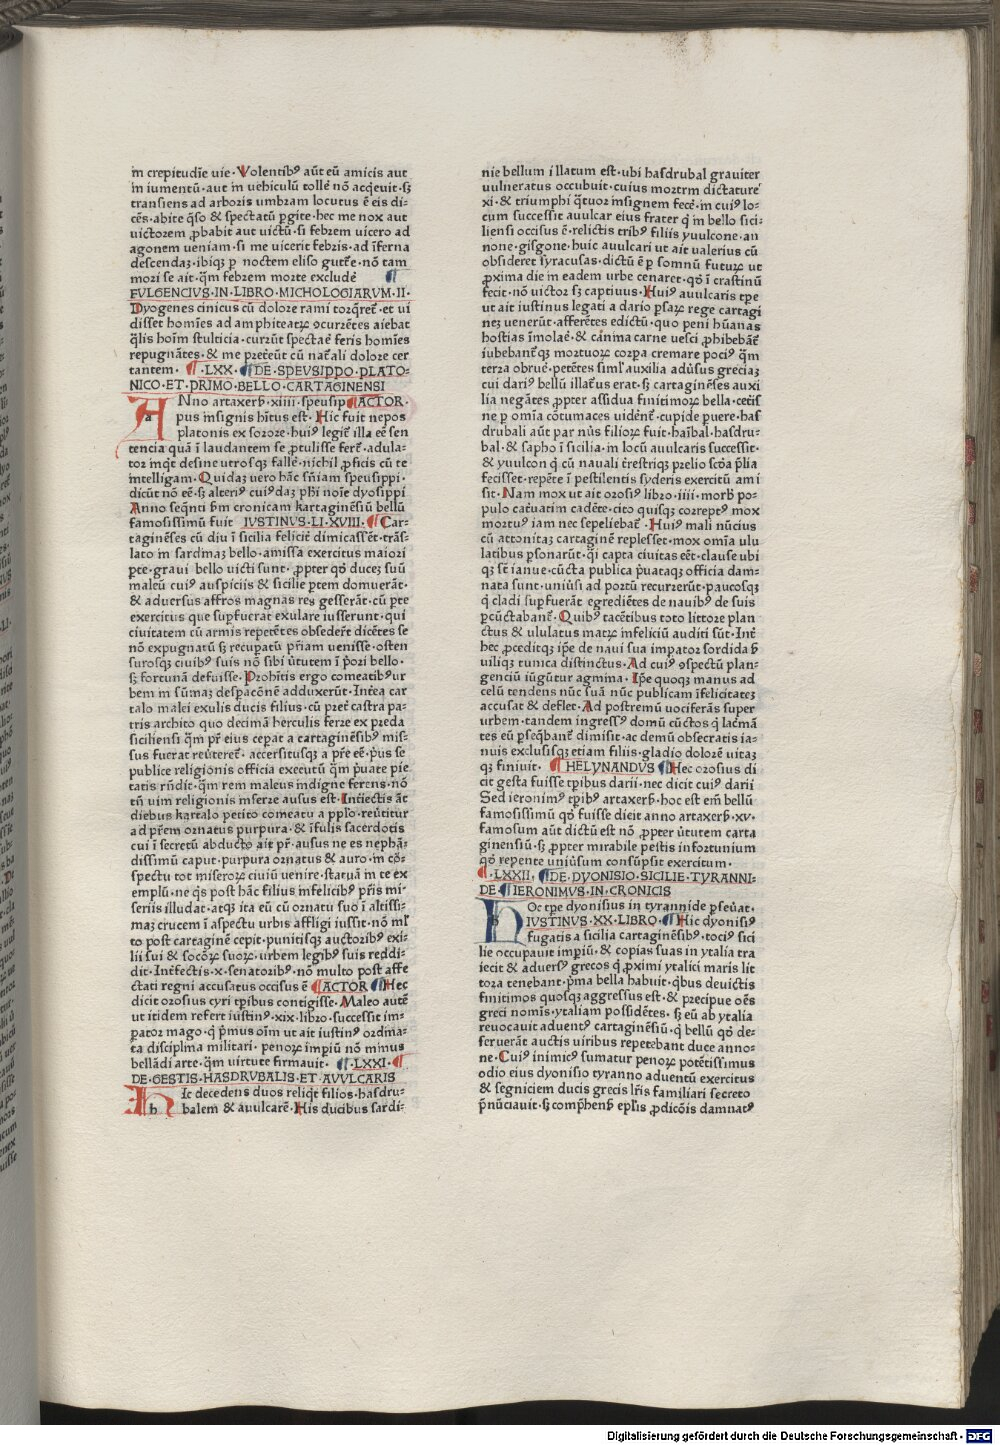 in crepitudīe uie · Volentibꝰ aūt eū amicis aut
in iumentū · aut in uehiculū tolle᷑ nō acq̇euit · sꝫ
transiens ad arboris umbram locutus ē eis di-
cēs · abite q̄so & spectatū ꝑgite · hec me nox aut
uictorem ꝓbabit aut uictū · si febrem uicero ad
agonem ueniam · si me uicerit febris · ad īferna
descendaꝫ · ibiqꝫ ꝑ noctem eliso guttē · nō tam
mori se ait · q̄m febrem morte exclude᷑ ¶
FVLGENCIVS · IN · LIBRO · MICHOLOGIARVM · II ·
Dyogenes cinicus cū dolore rami torq̄ret᷑ · et ui
disset homīes ad amphiteatꝝ ꝯcurrētes aiebat
q̄lis hoīm stulticia · currūt spectae᷑ feris homīes
repugnātes · & me p̄tereūt cū nat᷑ali dolore cer
tantem · ¶ · LXX · ¶ DE · SPEVSIPPO · PLATO-
NICO · ET · PRIMO · BELLO · CARTAGINENSI
ANno artaxerẜ · xiiii · speusip ¶ ACTOR ·
pus insignis hītus est · Hic fuit nepos
platonis ex sorore · huiꝰ legit᷑ illa eē sen
tencia quā ī laudantem se ꝓtulisse fert᷑ · adula-
tor inq̇t desine utrosqꝫ falle᷑ · nichil ꝓficis cū te
intelligam · Quidaꝫ uero hāc sn̄iam speusippi ·
dicūt nō eē · sꝫ alteriꝰ cuiꝰdaꝫ ph̄i noīe dyosippi
Anno seq̄nti ẜm cronicam kartaginēsiū bellū
famosissimū fuit IVSTINVS · LI · XVIII · ¶ Car-
taginēses cū diu ī sicilia felicit᷑ dimicassēt · trās-
lato in sardinaꝫ bello · amissa exercitus maiori
ꝑte · graui bello uicti sunt · ꝓpter qḋ duceꝫ suū
maleū cuiꝰ auspiciis & sicilie ꝑtem domuerāt ·
& aduersus affros magnas res gesserāt · cū ꝑte
exercitus que suꝑfuerat exulare iusserunt · qui
ciuitatem cū armis repetētes obseder᷑t dicētes se
nō expugnatū sꝫ recuꝑatū pr̄iam uenisse · osten
surosqꝫ ciuibꝰ suis nō sibi ūtutem ī p̄ori bello ·
sꝫ fortunā defuisse · Prohītis ergo comeatibꝰ ur
bem in sūmaꝫ desꝑacōnē adduxerūt · Int᷑ea car
talo malei exulis ducis filius · cū pret᷑ castra pa-
tris archito quo decimā herculis ferre ex preda
siciliensi q̄m pr᷑ eius ceꝑat a cartaginēsibꝰ mis-
sus fuerat reūteret᷑ · accersitusqꝫ a pr̄e eē · p̄us se
publice religionis officia executū q̄m p̄uate pie
tatis rn̄dit · q̄m rem maleus indigne ferens · nō
tn̄ uim religionis inferre ausus est · Int᷑iectis āt
diebus kartalo petito comeatu a pplo · reūtitur
ad pr̄em ornatus purpura · & īfulis sacerdotis
cui ī secretū abducto ait pr᷑ · ausus ne es nephā-
dissimū caput · purpura ornatus & auro · in cō-
spectu tot miseroꝝ ciuiū uenire · statuā in te ex
emplū · ne q̄s post hāc filius infelicibꝰ pr̄is mi-
seriis illudat · atqꝫ ita eū cū ornatu suo ī altissi-
maꝫ crucem ī aspectu urbis affligi iussit · nō ml᷑
to post cartaginē cepit · punitisqꝫ auctoribꝰ exi-
lii sui & socōꝝ suoꝝ · urbem legibꝰ suis reddi-
dit · Int᷑fectis · x · senatoribꝰ · nō multo post affe
ctati regni accusatus occisus ē ¶ ACTOR ¶ Hec
dicit orosius cyri tꝑibus contigisse · Maleo autē
ut itidem refert iustinꝰ · xix · libro · successit im-
ꝑator mago · q̇ p̄mus oīm ut ait iustinꝰ ordina-
ta disciplina militari · penoꝝ īmpiū nō minus
bellādi arte · q̄m uirtute firmauit · ¶ · LXXI · ¶
DE · GESTIS · HASDRVBALIS · ET · AVVLCARIS
HIc decedens duos reliq̇t filios · hasdru-
balem & auulcarē · His ducibus sardi-
nie bellum illatum est · ubi hasdrubal grauiter
uulneratus occubuit · cuius mortem dictature᷑
xi · & triumphi q̄tuor insignem fece᷑ · in cuiꝰ lo-
cum successit auulcar eius frater q̇ in bello sici-
liensi occisus ē · relictis tribꝰ filiis yuulcone · an
none · gisgone · huic auulcari ut ait ualerius cū
obsideret syracusas · dictū ē ꝑ somnū futurꝝ ut
ꝓxima die in eadem urbe cenaret · qḋ ī crastinū
fecit · nō uictor sꝫ captiuus · Huiꝰ auulcaris tꝑe
ut ait iustinus legati a dario ꝑsaꝝ rege cartagi
neꝫ uenerūt · afferētes edictū · quo peni hūanas
hostias īmolae᷑ · & canina carne uesci ꝓhibebāt᷑
iubebant᷑qꝫ mortuoꝝ corpa cremare pociꝰ q̄m
terra obrue᷑ · petētes siml᷑ auxilia adūsus greciaꝫ
cui dariꝰ bellū illatūs erat · sꝫ cartaginēses auxi
lia negātes ꝓpter assidua finitimoꝝ bella · cet᷑is
ne ꝑ omīa cōtumaces uidēnt᷑ · cupide puere · has
drubali aūt par nūs filioꝝ fuit · haībal · hasdru-
bal · & sapho ī sicilia · in locū auulcaris successit ·
& yuulcon q̇ cū nauali t᷑restriqꝫ prelio scōa p̄lia
fecisset · repēte ī pestilentis syderis exercitū ami
sit · Nam mox ut ait orosiꝰ libro · iiii · morbꝰ po-
pulo cat᷑uatim cadēte · cito quisqꝫ correptꝰ mox
mortuꝰ iam nec sepeliebat᷑ · Huiꝰ mali nūcius
cū attonitaꝫ cartaginē replesset · mox omīa ulu
latibus ꝑsonarūt · q̄i capta ciuitas eēt · clause ubi
qꝫ se᷑ ianue · cūcta publica p̄uataqꝫ officia dam-
nata sunt · uniūsi ad portū recurrerūt · paucosqꝫ
q̇ cladi suꝑfuerāt egrediētes de nauibꝰ de suis
ꝑcūctabant᷑ · Quibꝰ tacētibus toto littore plan
ctus & ululatus matꝝ infeliciū auditi sūt · Int᷑
hec ꝓceditqꝫ ip̄e de naui sua impator sordida ẜ
uiliqꝫ tunica distinctus · Ad cuiꝰ ꝯspectū plan-
genciū iūgūtur agmina · Ip̄e quoqꝫ manus ad
celū tendens nūc suā nūc publicam īfelicitateꝫ
accusat & deflet · Ad postremū uociferās super
urbem · tandem ingressꝰ domū cūctos q̇ lac᷑mā
tes eū ꝑseq̄bant᷑ dimisit · ac demū obsecratis ia-
nuis exclusisqꝫ etiam filiis · gladio dolorē uitaꝫ
qꝫ finiuit · ¶ HELYNANDVS ¶ Hec orosius di
cit gesta fuisse tꝑibus darii · nec dicit cuiꝰ darii
Sed ieronimꝰ tꝑibꝰ artaxerẜ · hoc est em̄ bellū
famosissimū qḋ fuisse dicit anno artaxerẜ · xv ·
famosum aūt dictū est nō ꝓpter ūtutem carta
ginensiū · sꝫ ꝓpter mirabile pestis infortunium
qḋ repente uniūsum consūpsit exercitum ·
¶ · LXXII · ¶ DE · DYONISIO · SICILIE · TYRANNI-
DE · ¶ IERONIMVS · IN · CRONICIS
HOc tꝑe dyonisius in tyrannide ꝑseūat ·
IVSTINVS · XX · LIBRO · ¶ Hic dyonisiꝰ
fugatis a sicilia cartaginēsibꝰ · tociꝰ sici
lie occupauit impiū · & copias suas in ytalia tra
iecit & aduersꝰ grecos q̇ ꝓximi ytalici maris lit
tora tenebant · p̄ma bella habuit · q̇bus deuictis
finitimos quosqꝫ aggressus est · & precipue oēs
greci nomīs · ytaliam possidētes · sꝫ eū ab ytalia
reuocauit aduentꝰ cartaginēsiū · q̇ bellū qḋ de-
seruerāt auctis uiribus repetebant duce anno-
ne · Cuiꝰ inimicꝰ sumatur penoꝝ potētissimus
odio eius dyonisio tyranno aduentū exercitus
& segniciem ducis grecis lr̄is familiari secreto
p̄nūciauit · sꝫ comp̄henẜ ep̄l̄is ꝓdicōis damnatꝰ
Digitalisierung gefördert durch die Deutsche Forschungsgemeinschaft · DFG